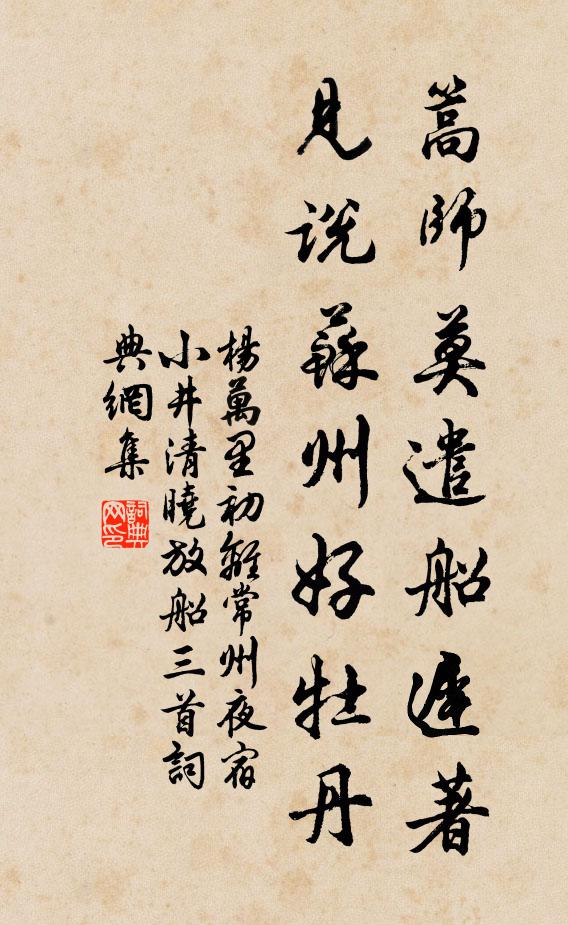 篙師莫遣船遲著
見說蘇州好牡丹
楊萬里初離常州夜宿
小井清曉放船三首詞
典網集
詞典
网印